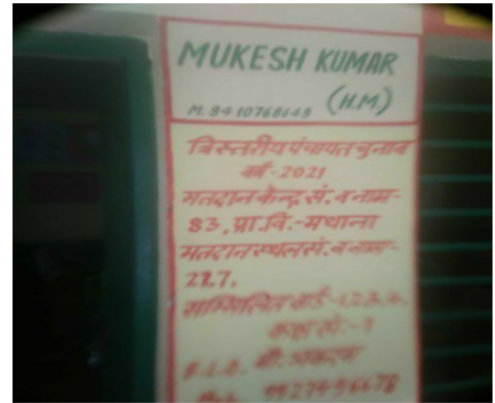 MUKESH KUMAR
M. 9410768649 (H.M.)
त्रिस्तरीय पंचायत चुनाव
वर्ष-2021
मतदान केन्द्र सं. व नाम-
83, प्रा.वि.-मथाना
मतदान स्थल सं. व नाम-
227,
सम्मिलित वार्ड-1,2,3,4,
कक्ष सं.-1
B.L.O. श्री
9927496678